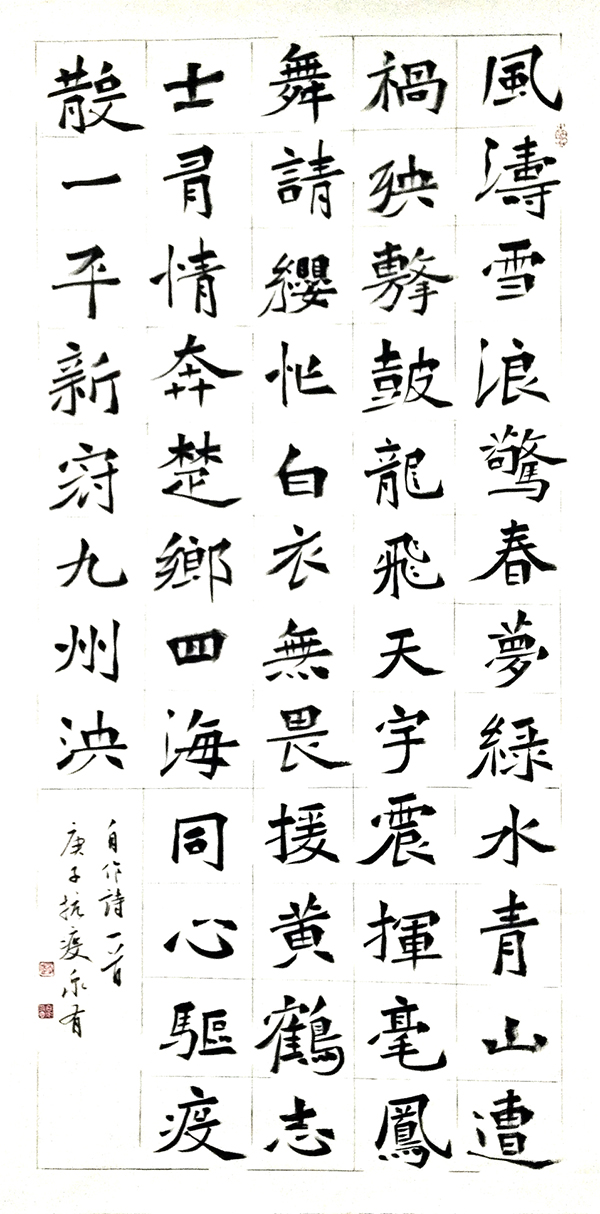 風濤雪浪驚春夢綠水青山遭
禍殃擊鼓龍飛天宇震揮毫鳳
舞請纓忙白衣無畏援黃鶴志
士有情奔楚鄉四海同心驅疫
散一平新冠九州泱
自作詩一首
庚子抗疫永有